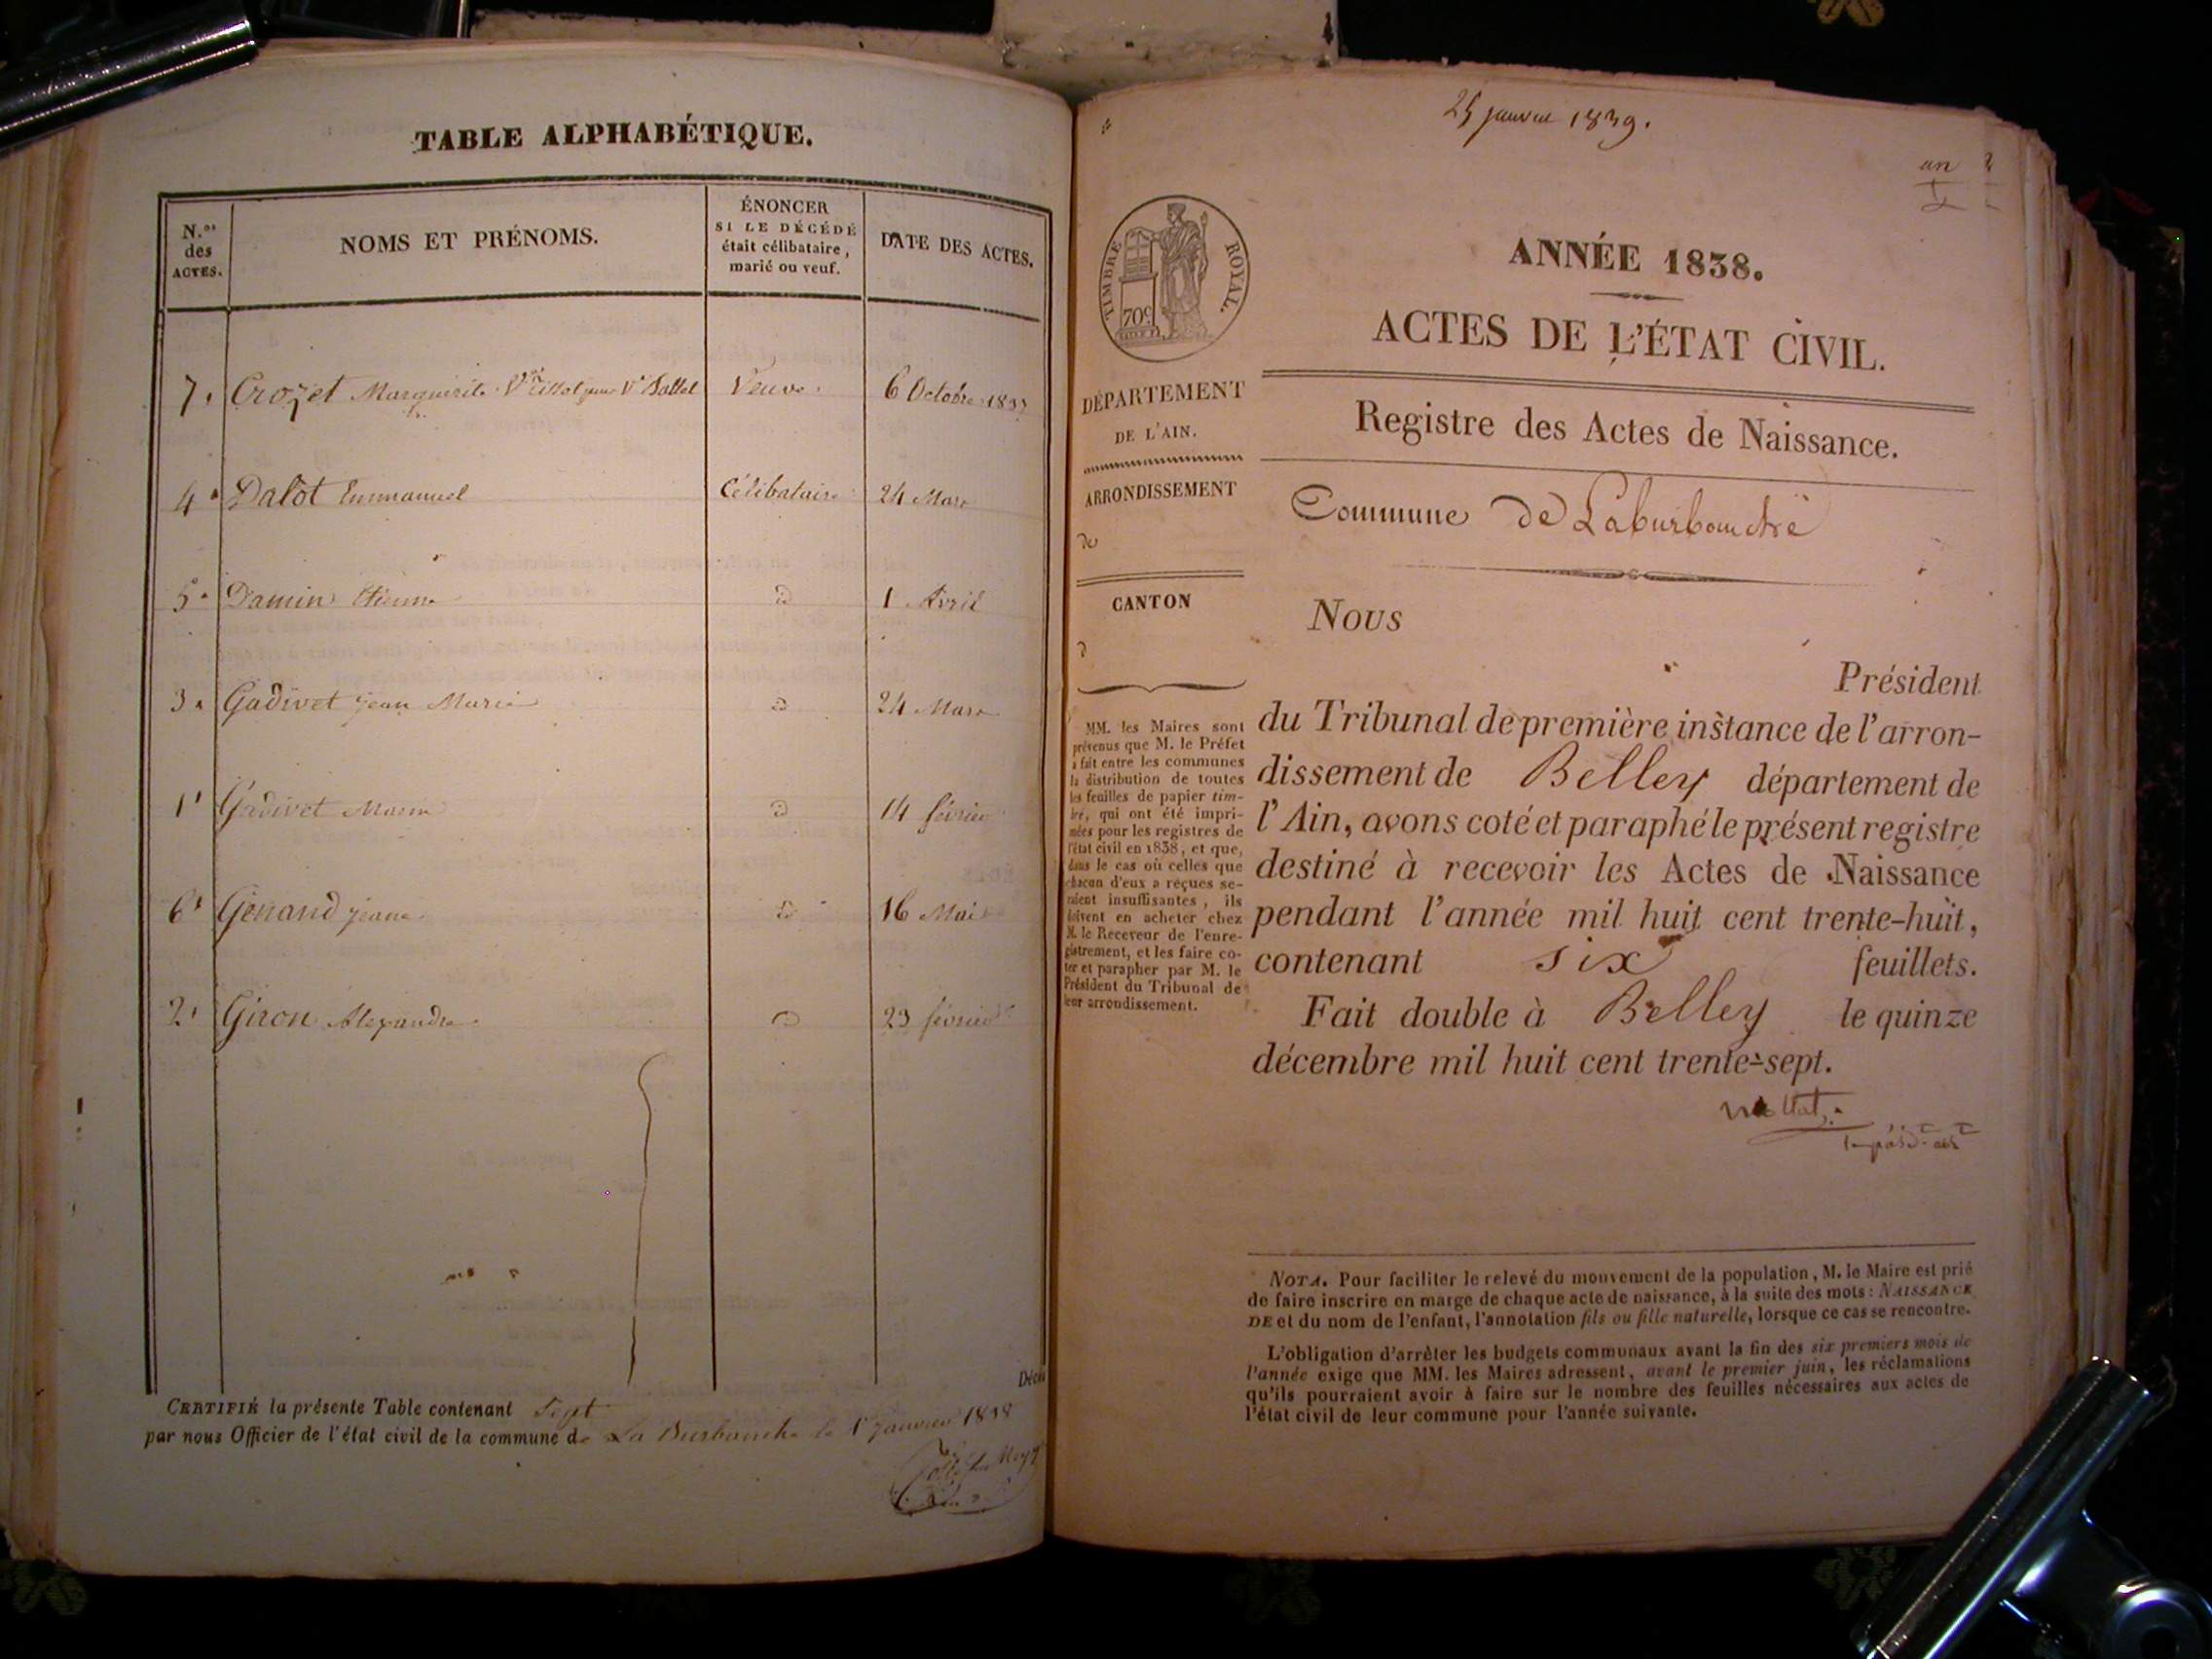 TABLE ALPHABÉTIQUE.
N.os des ACTES.
NOMS ET PRÉNOMS.
ÉNONCER SI LE DÉCÉDÉ était célibataire, marié ou veuf.
DATE DES ACTES.
7. Crozet Marguerite Veuve 6 Octobre 1837
4. Dalot Emmanuel Célibataire 24 Mars
5. Damin Etienne D 1 Avril
3. Gadivet Jean Marie D 24 Mars
1 Gadivet Marin D 14 février
6 Genand Jeane D 16 Mai
2 Giron Alexandre D 23 février
Décès
CERTIFIÉ la présente Table contenant Sept
par nous Officier de l'état civil de la commune de La Burbanche le 1er Janvier 1838
25 janvier 1839.
un
ANNÉE 1838.
ACTES DE L'ÉTAT CIVIL.
TIMBRE ROYAL.
70c
DÉPARTEMENT
DE L'AIN.
ARRONDISSEMENT
de
CANTON
d
Registre des Actes de Naissance.
Commune de Laburbanche
Nous
Président
du Tribunal de première instance de l'arron-
dissement de Belley département de
l'Ain, avons coté et paraphé le présent registre
destiné à recevoir les Actes de Naissance
pendant l'année mil huit cent trente-huit,
contenant six feuillets.
Fait double à Belley le quinze
décembre mil huit cent trente-sept.
MM. les Maires sont
prévenus que M. le Préfet
a fait entre les communes
la distribution de toutes
les feuilles de papier tim-
bré, qui ont été impri-
mées pour les registres de
l'état civil en 1838, et que,
dans le cas où celles que
chacun d'eux a reçues se-
raient insuffisantes, ils
doivent en acheter chez
M. le Receveur de l'enre-
gistrement, et les faire co-
ter et parapher par M. le
Président du Tribunal de
leur arrondissement.
NOTA. Pour faciliter le relevé du mouvement de la population, M. le Maire est prié
de faire inscrire en marge de chaque acte de naissance, à la suite des mots: NAISSANCE
DE et du nom de l'enfant, l'annotation fils ou fille naturelle, lorsque ce cas se rencontre.
L'obligation d'arrêter les budgets communaux avant la fin des six premiers mois de
l'année exige que MM. les Maires adressent, avant le premier juin, les réclamations
qu'ils pourraient avoir à faire sur le nombre des feuilles nécessaires aux actes de
l'état civil de leur commune pour l'année suivante.